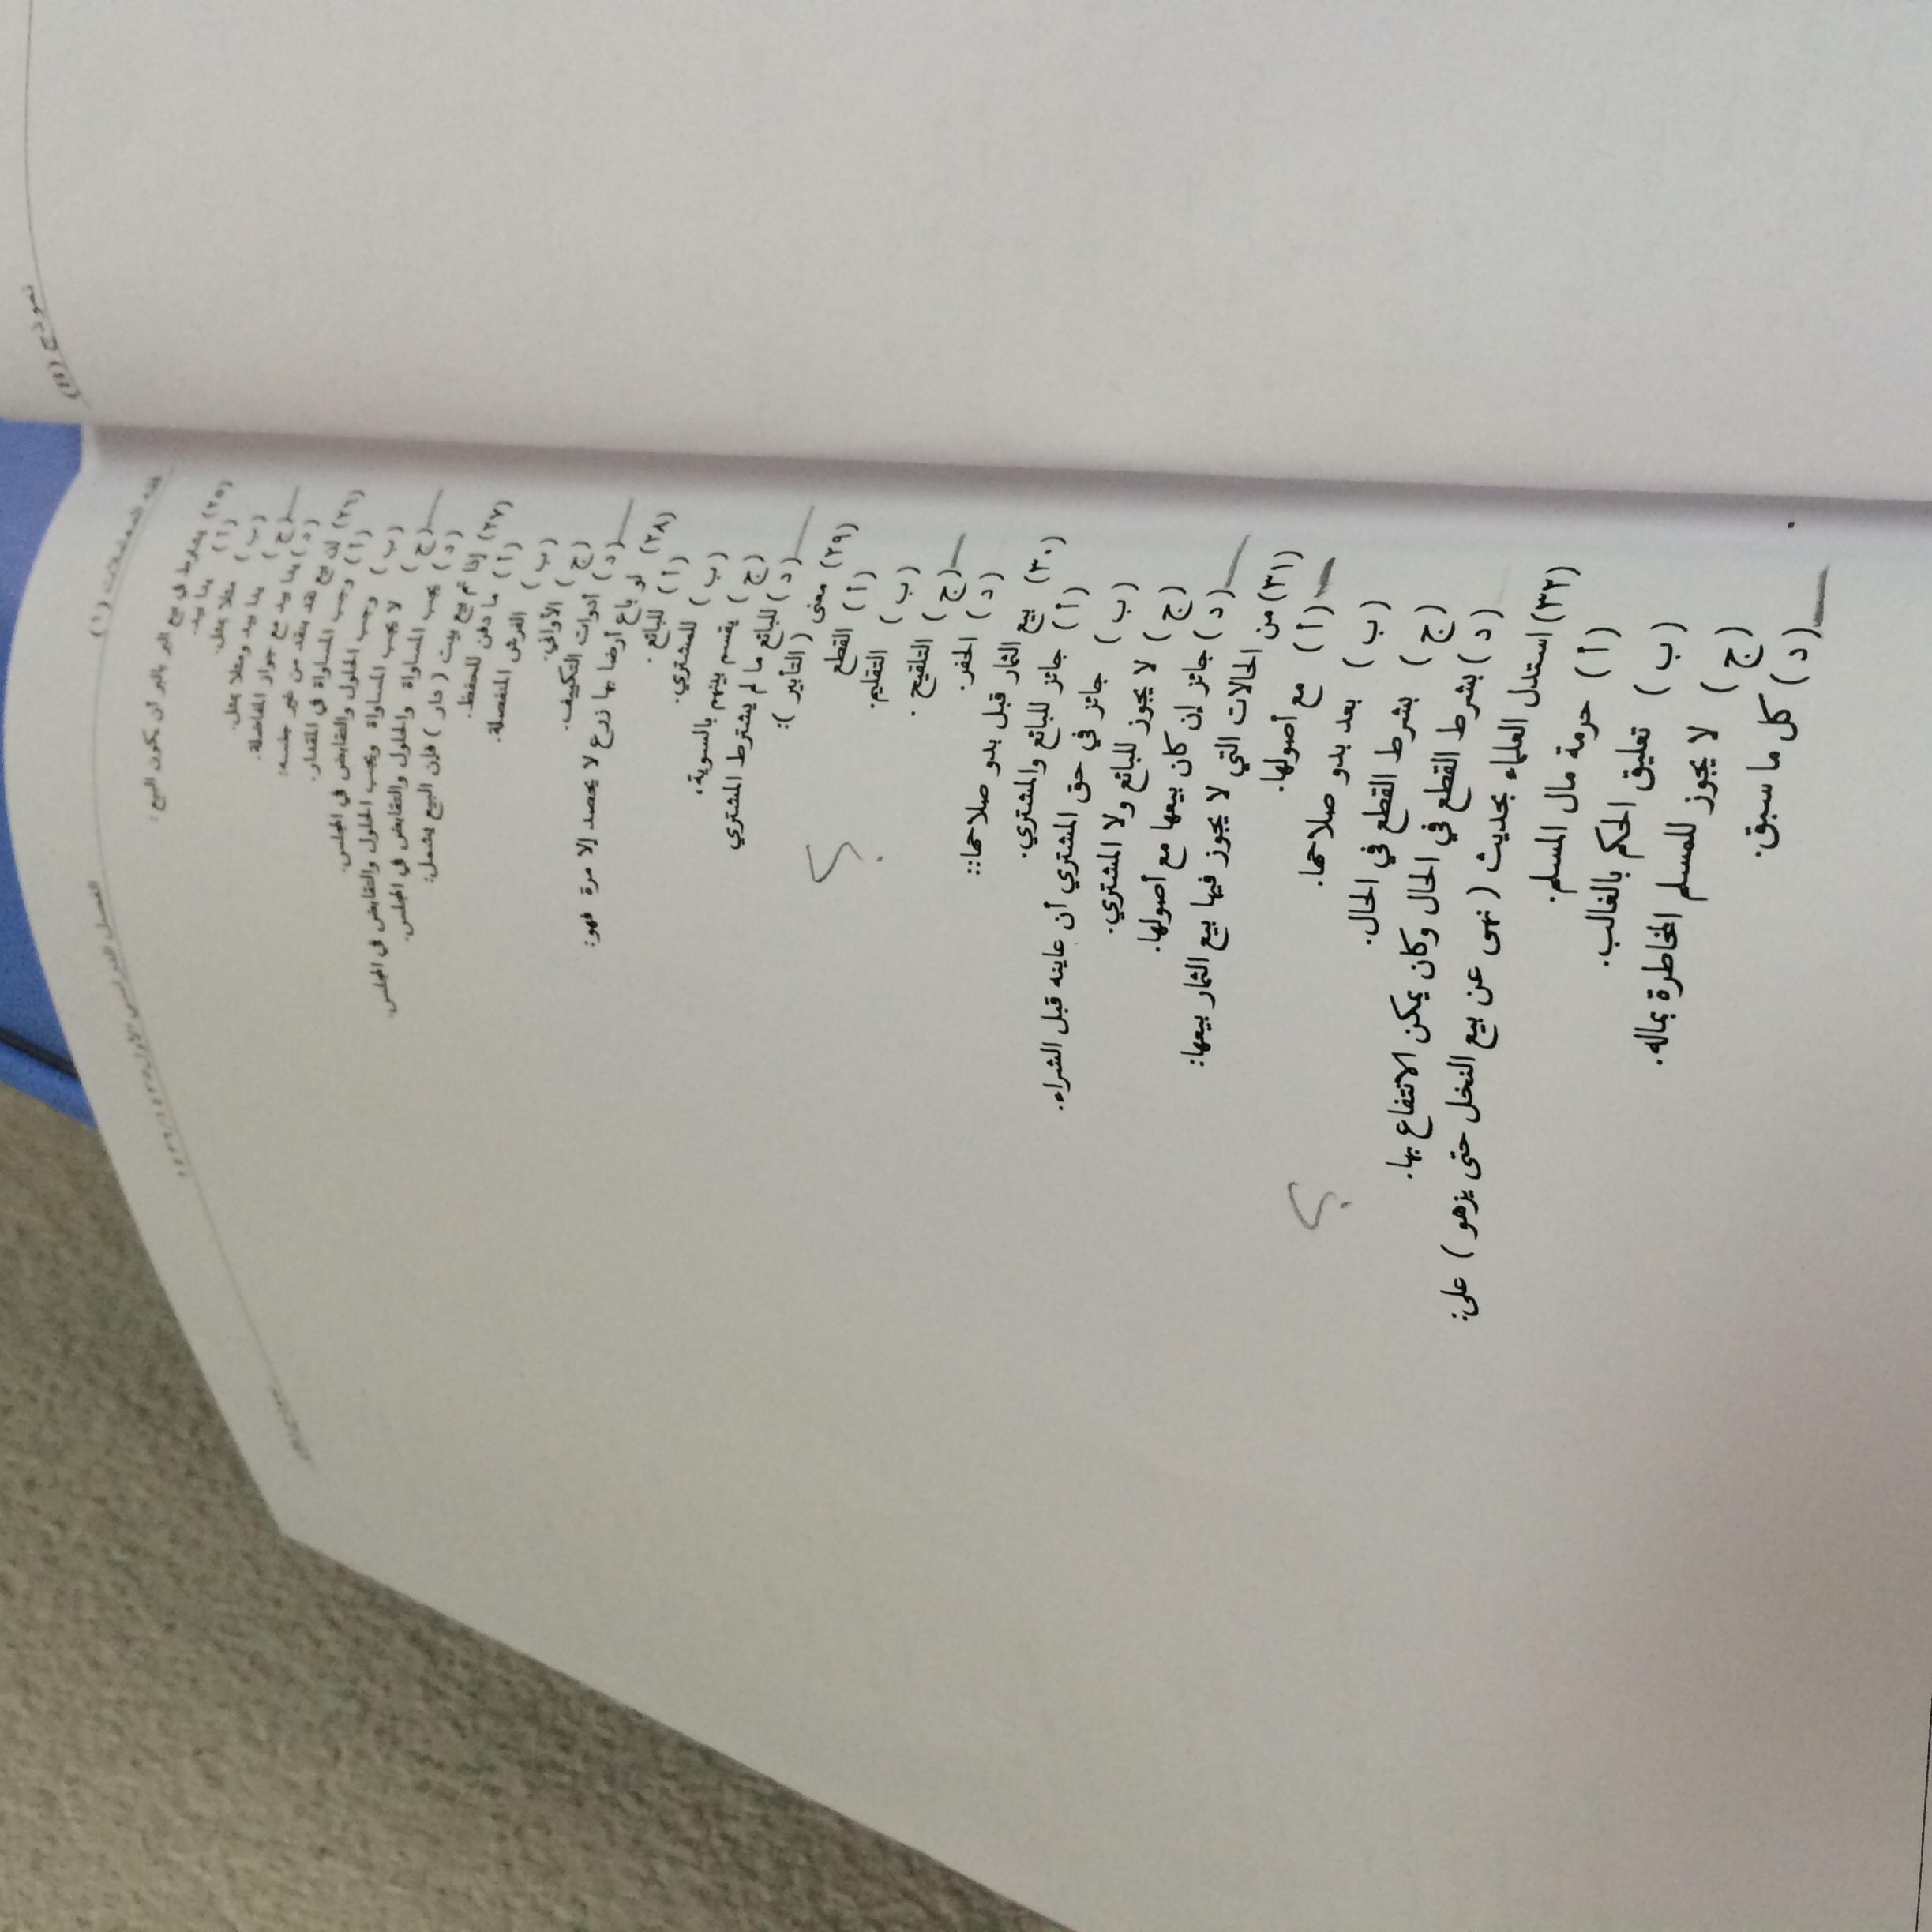 نموذج (II)
فقه المعاملات (١) الفصل الدراسي الأول
(٢٥) يشترط في بيع البر بالبر أن يكون البيع:
(أ) يدا بيد.
(ب) مثلا بمثل.
(ج) يدا بيد ومثلا بمثل.
(د) يدا بيد مع جواز المفاضلة.
(٢٦) إن بيع نقد بنقد من غير جنسه:
(أ) وجب المساواة في المقدار.
(ب) وجب الحلول والتقابض في المجلس.
(ج) لا يجب المساواة ويجب الحلول والتقابض في المجلس.
(د) يجب المساواة والحلول والتقابض في المجلس.
(٢٧) إذا تم بيع بيت (دار) فإن البيع يشمل:
(أ) ما دفن للحفظ.
(ب) الفرش المنفصلة.
(ج) الأواني.
(د) أدوات التكييف.
(٢٨) لو باع أرضا بها زرع لا يحصد إلا مرة فهو:
(أ) للبائع.
(ب) للمشتري.
(ج) يقسم بينهم بالسوية،
(د) للبائع ما لم يشترط المشتري
(٢٩) معنى (التأبير):
(أ) القطع
(ب) التقليم.
(ج) التلقيح.
(د) الحفر.
(٣٠) بيع الثمار قبل بدو صلاحها::
(أ) جائز للبائع والمشتري.
(ب) جائز في حق المشتري أن عاينه قبل الشراء.
(ج) لا يجوز للبائع ولا المشتري.
(د) جائز إن كان بيعها مع أصولها.
(٣١) من الحالات التي لا يجوز فيها بيع الثمار بيعها:
(أ) مع أصولها.
(ب) بعد بدو صلاحها.
(ج) بشرط القطع في الحال.
(د) بشرط القطع في الحال وكان يمكن الانتفاع بها.
(٣٢) استدل العلماء بحديث (نهى عن بيع النخل حتى يزهو) على:
(أ) حرمة مال المسلم.
(ب) تعليق الحكم بالغالب.
(ج) لا يجوز للمسلم المخاطرة بماله.
(د) كل ما سبق.